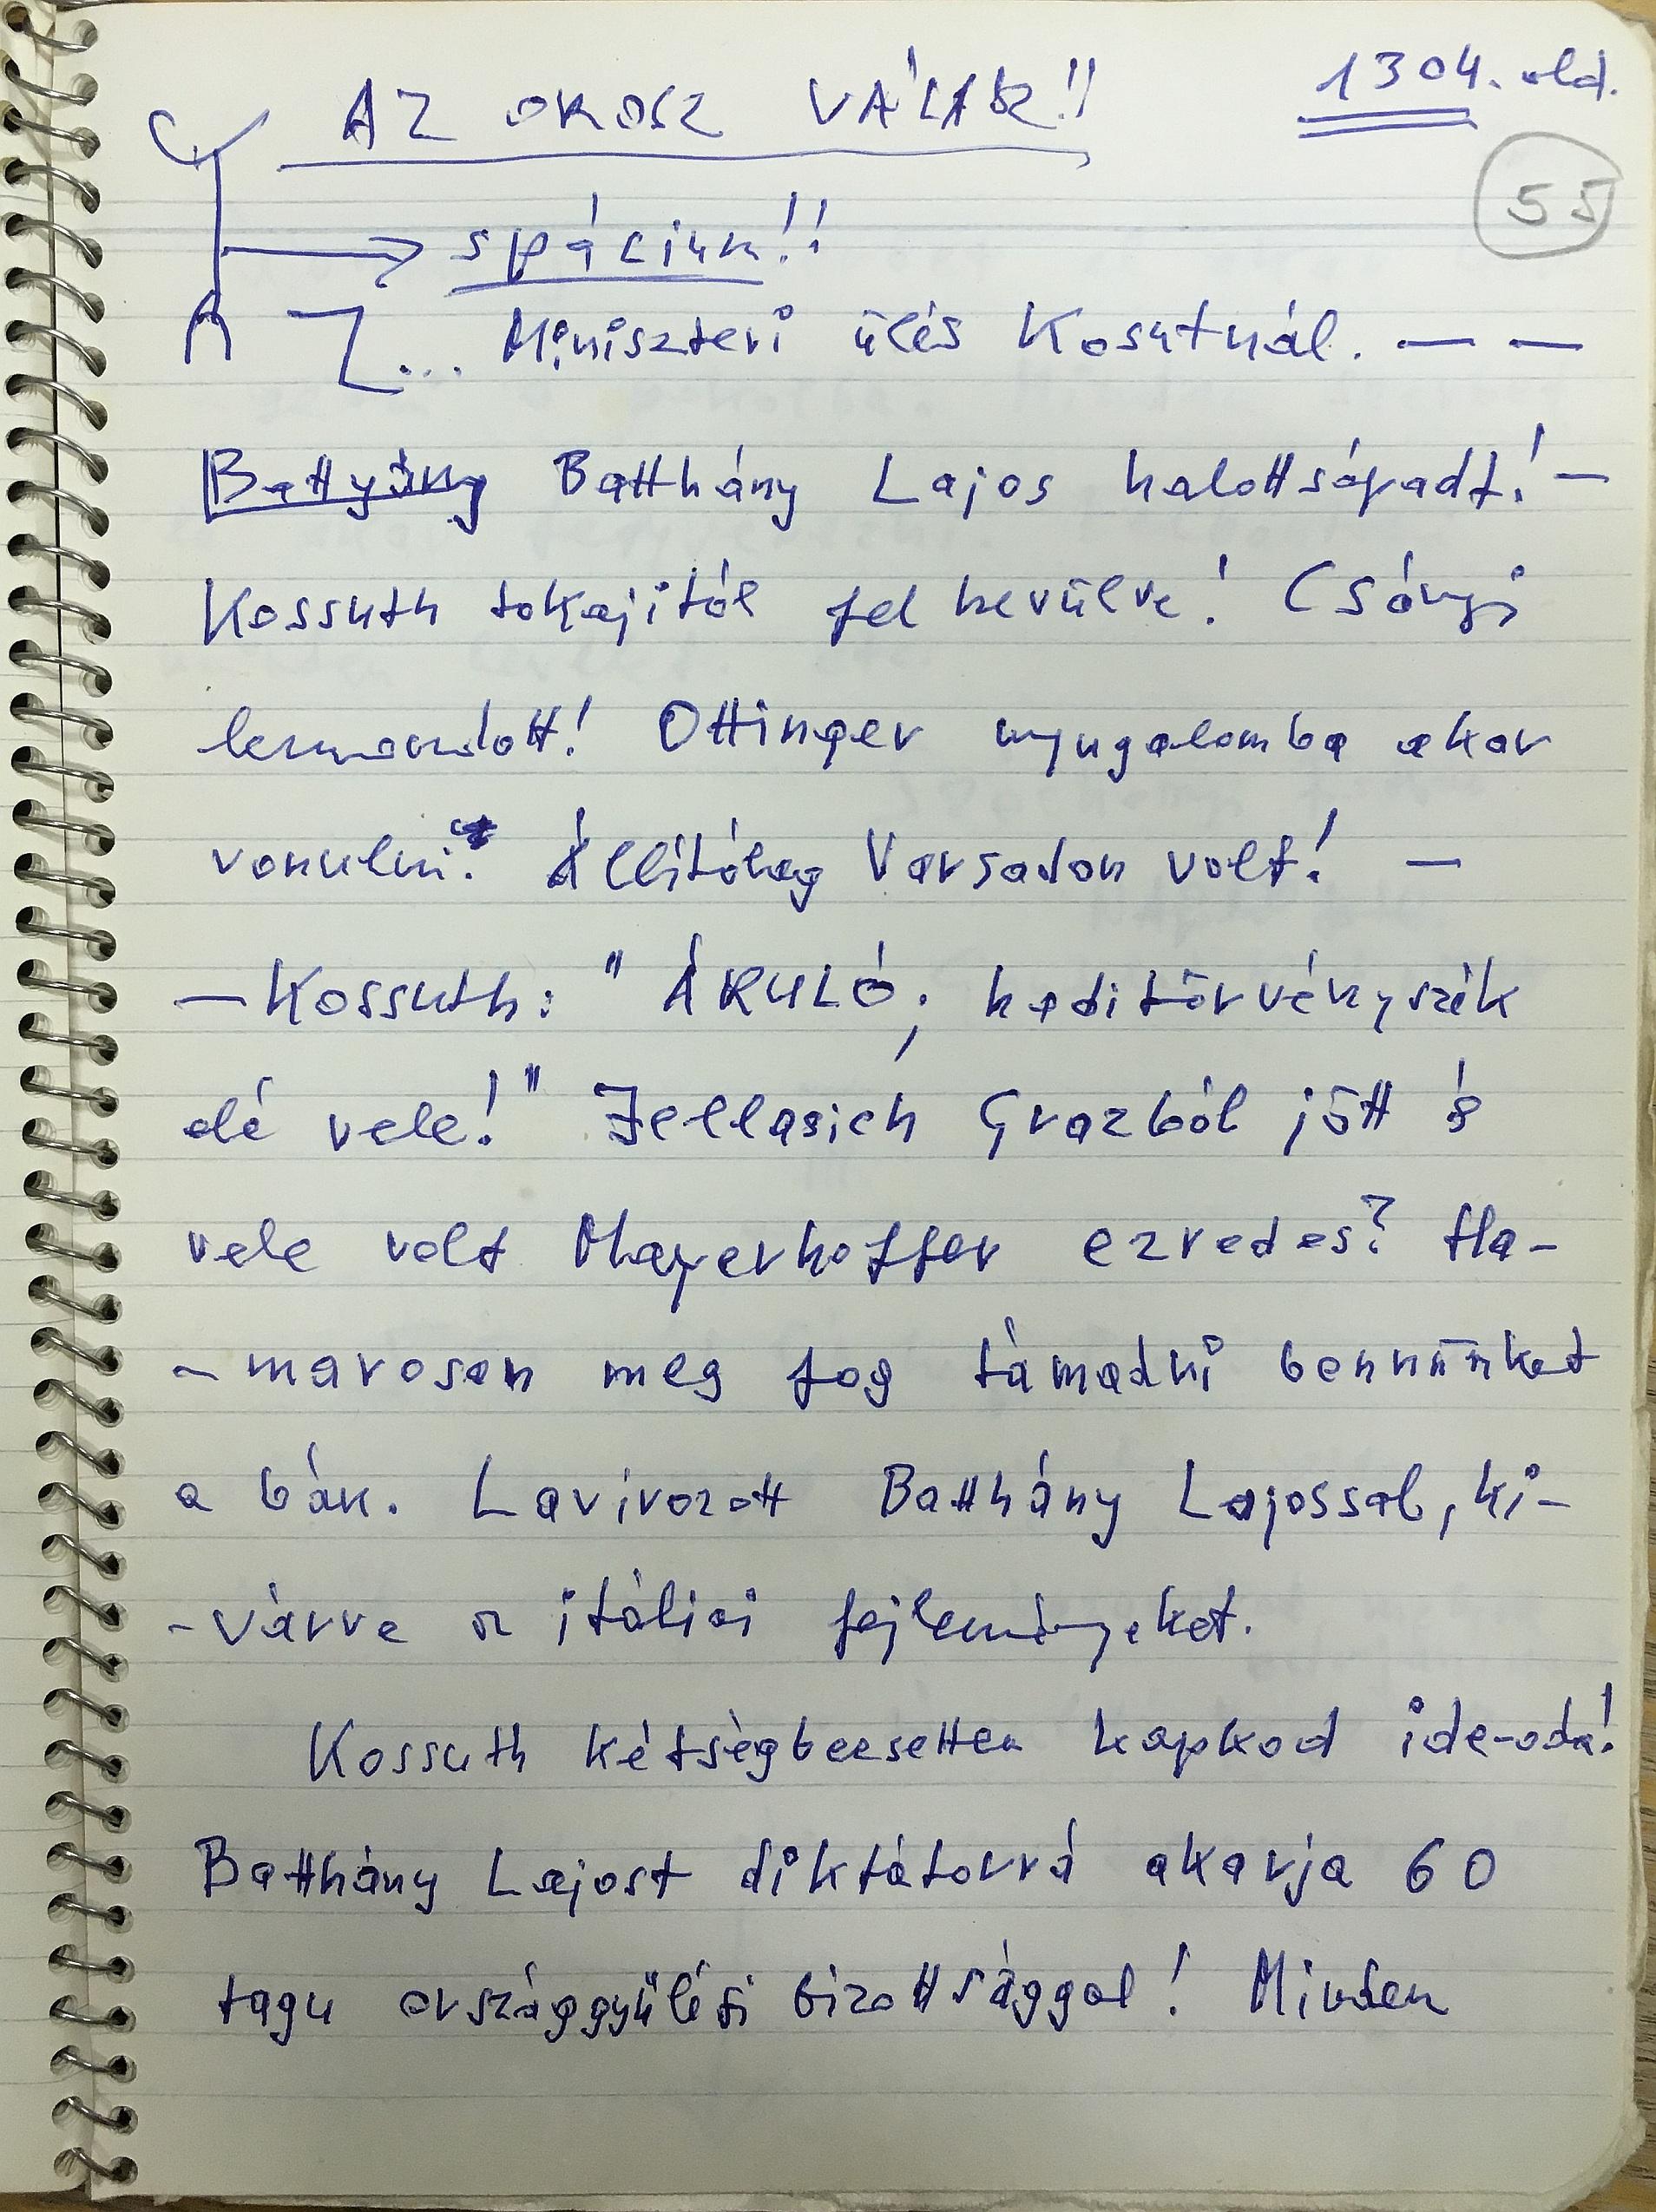 1304. old.
AZ OROSZ VÁLASZ!!
55
spácium!!
... Miniszteri ülés Kosutnál. — —
Battyány Batthány Lajos halottsápadt! —
Kossuth tokajitól felhevülve! Csányi
lemondott! Ottinger nyugalomba akar
vonulni. Állítólag Varsadon volt! —
— Kossuth: "ÁRULÓ; haditörvényszék
elé vele!" Jellasich Grazból jött s
vele volt Mayerhoffer ezredes? Ha-
- marosan meg fog támadni bennünket
a bán. Lavírozott Batthány Lajossal, ki-
- várve az itáliai fejleményeket.
Kossuth kétségbeesetten kapkod ide-oda!
Batthány Lajost diktátorrá akarja 60
tagu országgyülési bizottsággal! Minden